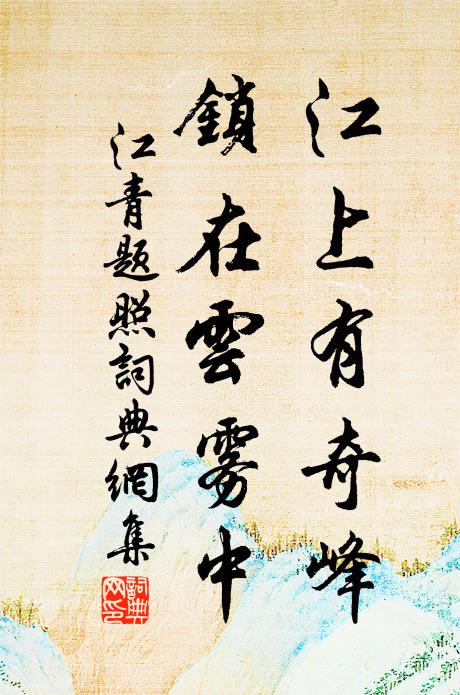 江上有奇峰
鎖在雲霧中
江青題照詞典網集
詞典網印